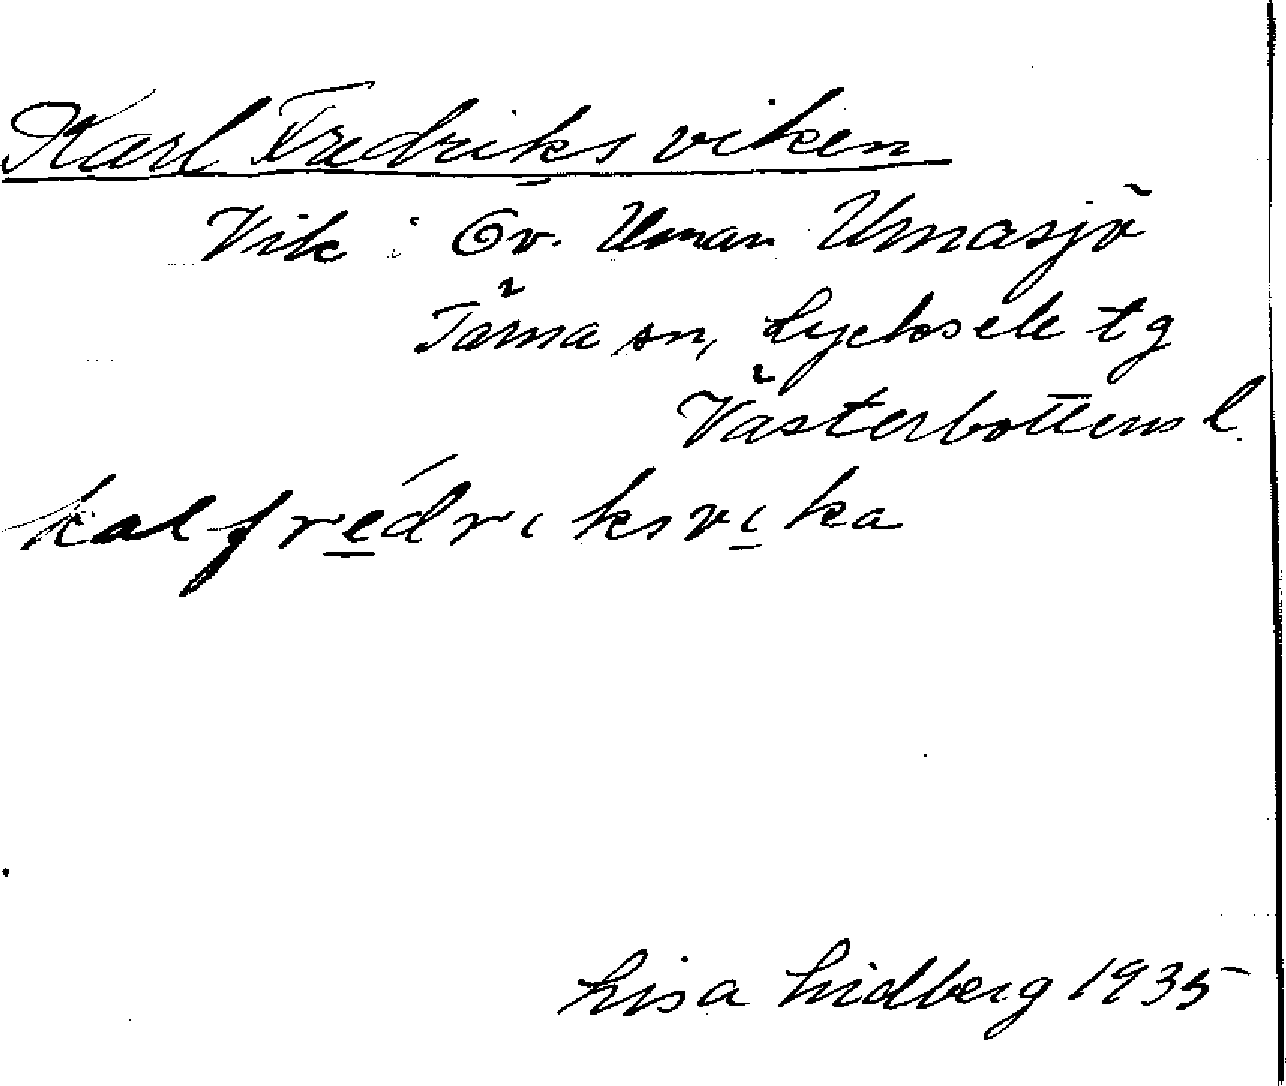 Karl Fredriksviken
Vik i Öv. Uman Umasjö
Tärna sn, Lycksele tg
Västerbottens l.
kalfrédriksvika
Lisa Lidberg 1935